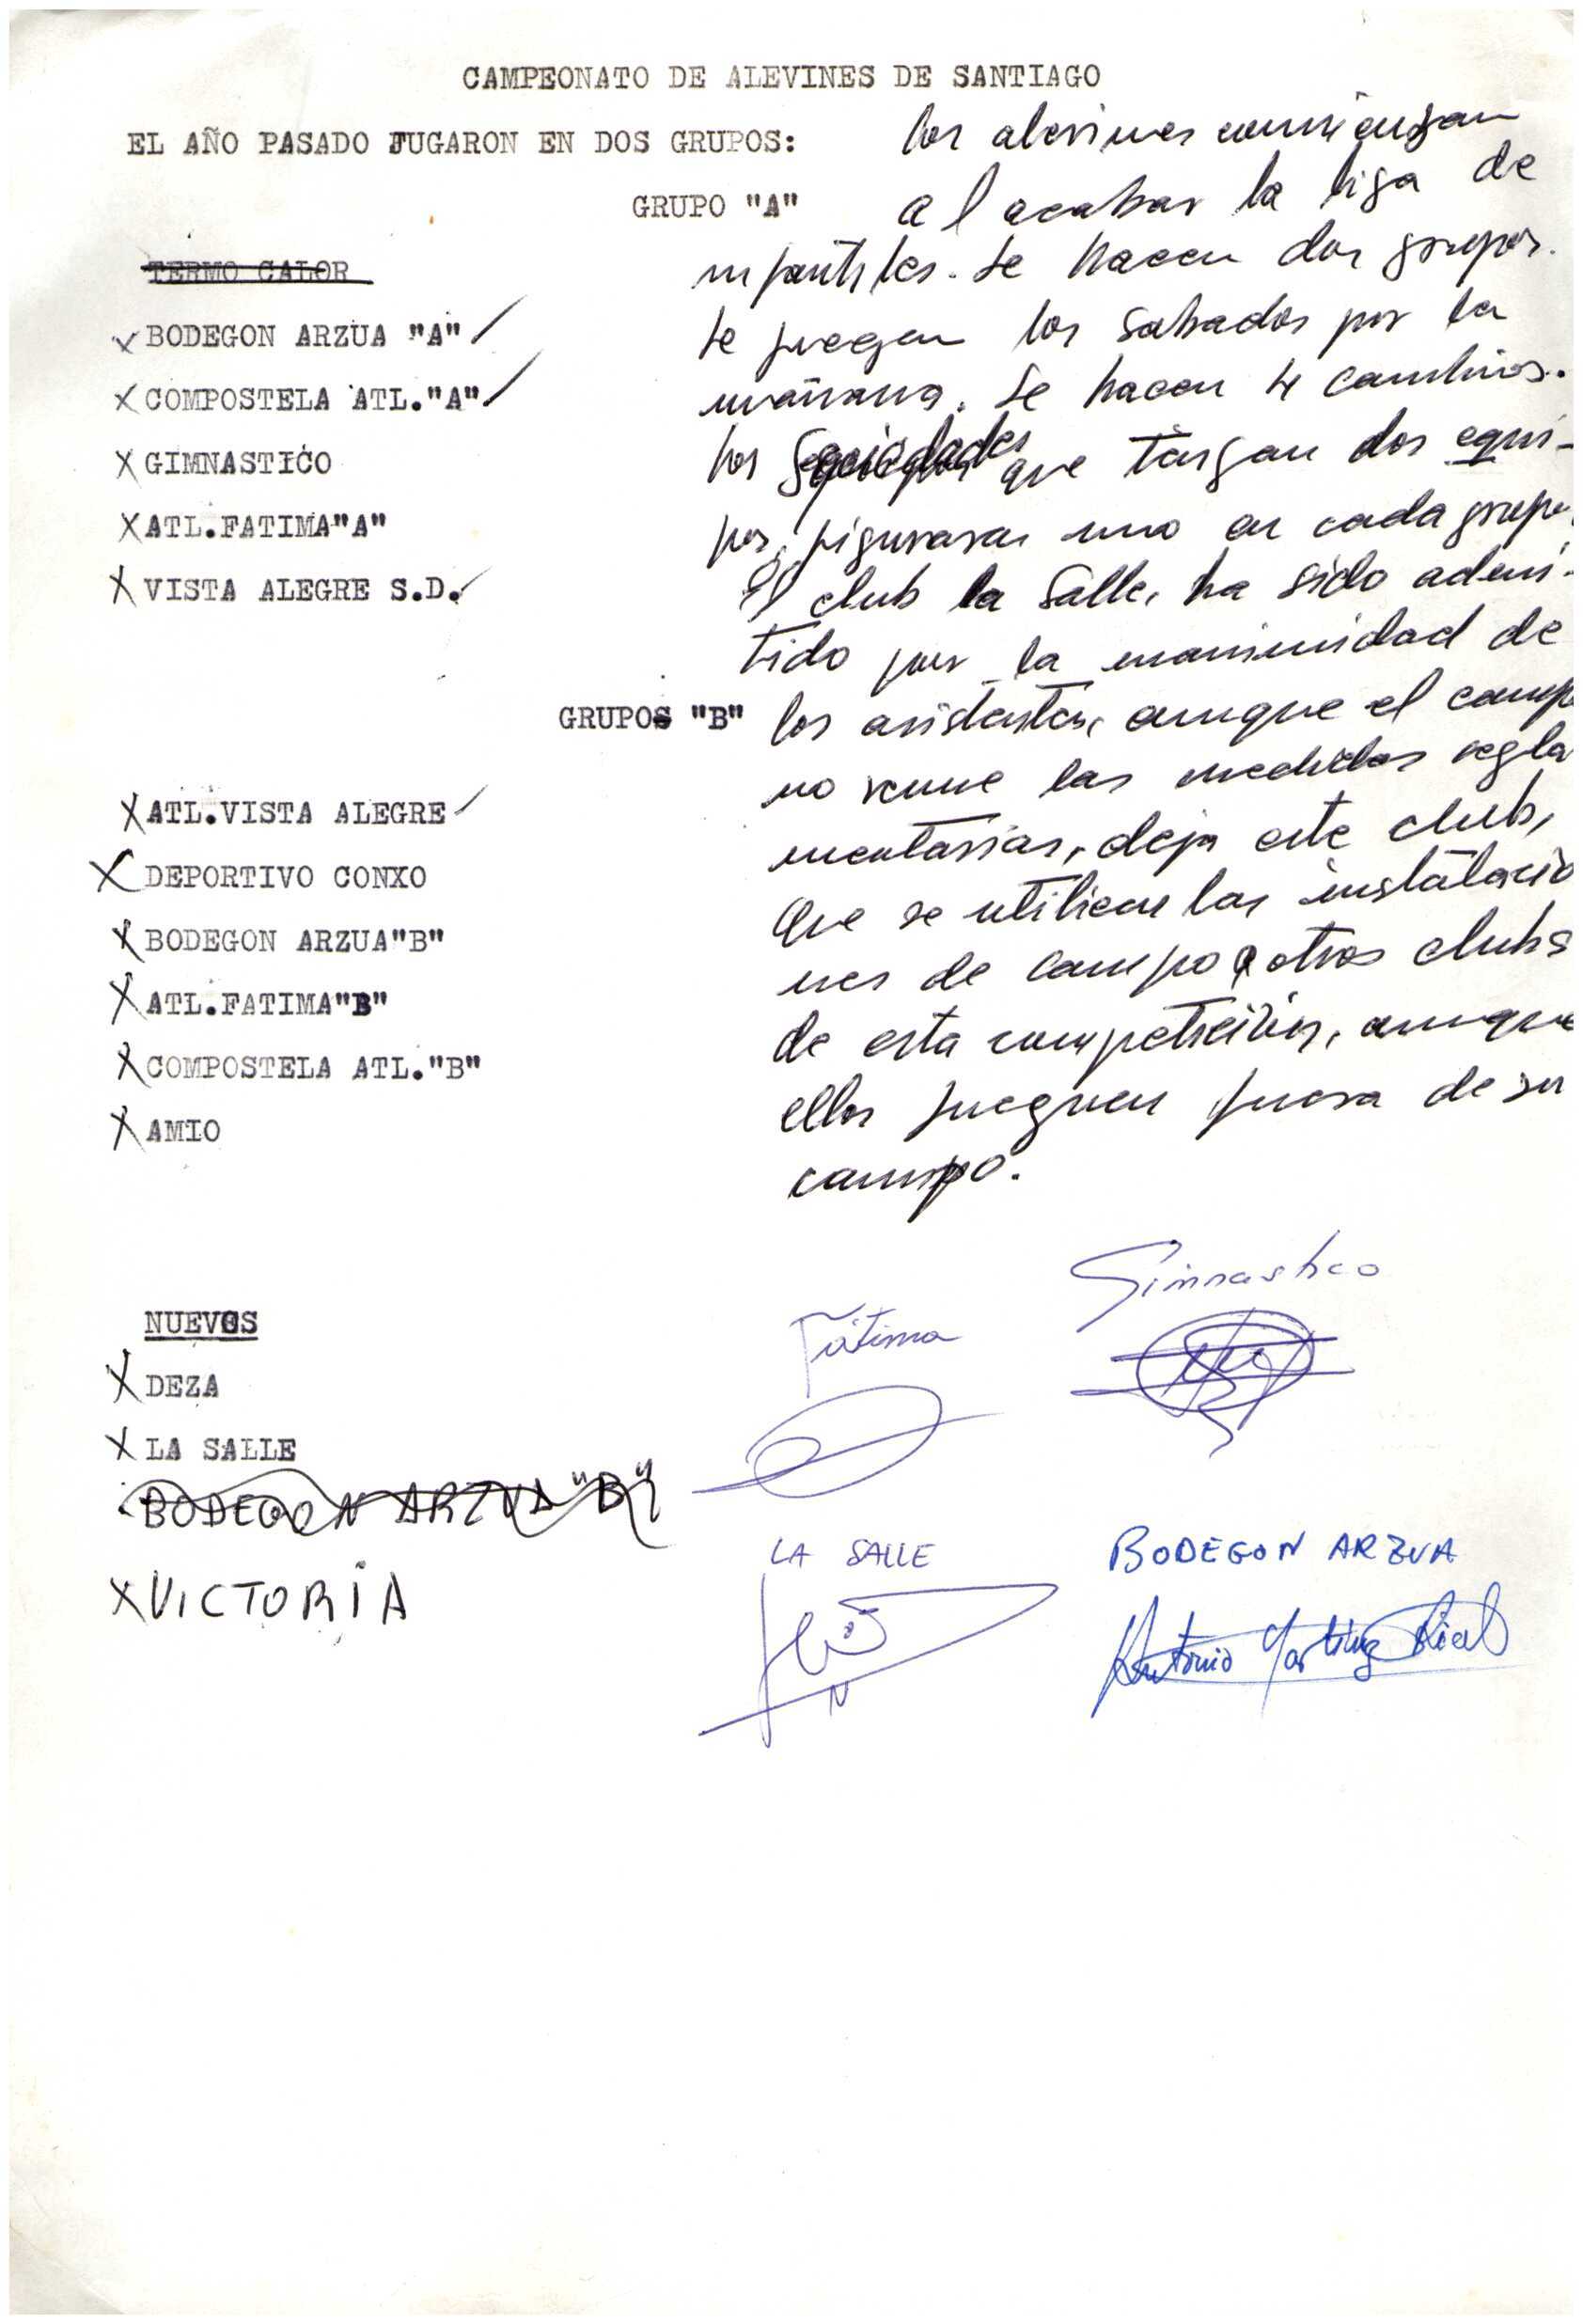 CAMPEONATO DE ALEVINES DE SANTIAGO
EL AÑO PASADO JUGARON EN DOS GRUPOS:
GRUPO "A"
TERMO CALOR
X BODEGON ARZUA "A" /
X COMPOSTELA ATL."A" /
X GIMNASTICO
X ATL.FATIMA"A"
X VISTA ALEGRE S.D. /
GRUPOS "B"
X ATL.VISTA ALEGRE /
X DEPORTIVO CONXO
X BODEGON ARZUA"B"
X ATL.FATIMA"B"
X COMPOSTELA ATL."B"
X AMIO
NUEVOS
X DEZA
X LA SALLE
BODEGON ARZUA "B"
X VICTORIA
los alevines comienzan
al acabar la liga de
infantiles. Se hacen dos grupos.
Se juegan los sabados por la
mañana. Se hacen 4 cambios.
los Sociedades que tengan dos equi-
pos, figuraran uno en cada grupo.
El club la Salle, ha sido admi-
tido por la unanimidad de
los asistentes, aunque el campo
no reune las medidas regla
mentarias, deja este club,
que se utilicen las instalacio
nes de campo a otros clubs
de esta competición, aunque
ellos jueguen fuera de su
campo.
Gimnastico
Fátima
LA SALLE
BODEGON ARZUA
Antonio Rial